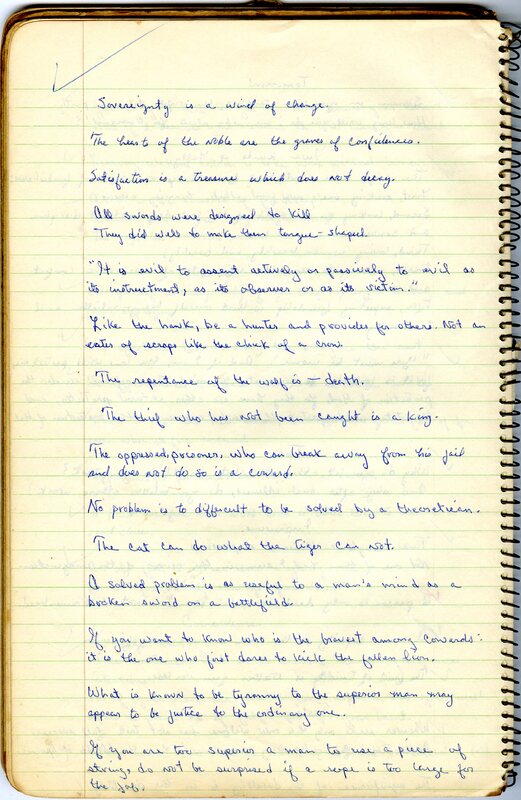 Sovereignty is a wind of change.
The heart of the noble are the graves of confidences.
Satisfaction is a treasure which does not decay.
All swords were designed to kill
They did well to make them tongue-shaped.
"It is evil to assent actively or passively to evil as
its instrument, as its observer or as its victim."
Like the hawk, be a hunter and provider for others. Not an
eater of scraps like the chick of a crow.
The repentance of the wolf is — death.
The thief who has not been caught is a king.
The oppressed, prisoner, who can break away from his jail
and does not do so is a coward.
No problem is to difficult to be solved by a theoretician.
The cat can do what the tiger can not.
A solved problem is as useful to a man's mind as a
broken sword on a battlefield.
If you want to know who is the bravest among cowards:
it is the one who first dares to kick the fallen lion.
What is known to be tyranny to the superior man may
appear to be justice to the ordinary one.
If you are too superior a man to use a piece of
string, do not be surprised if a rope is too large for
the job.